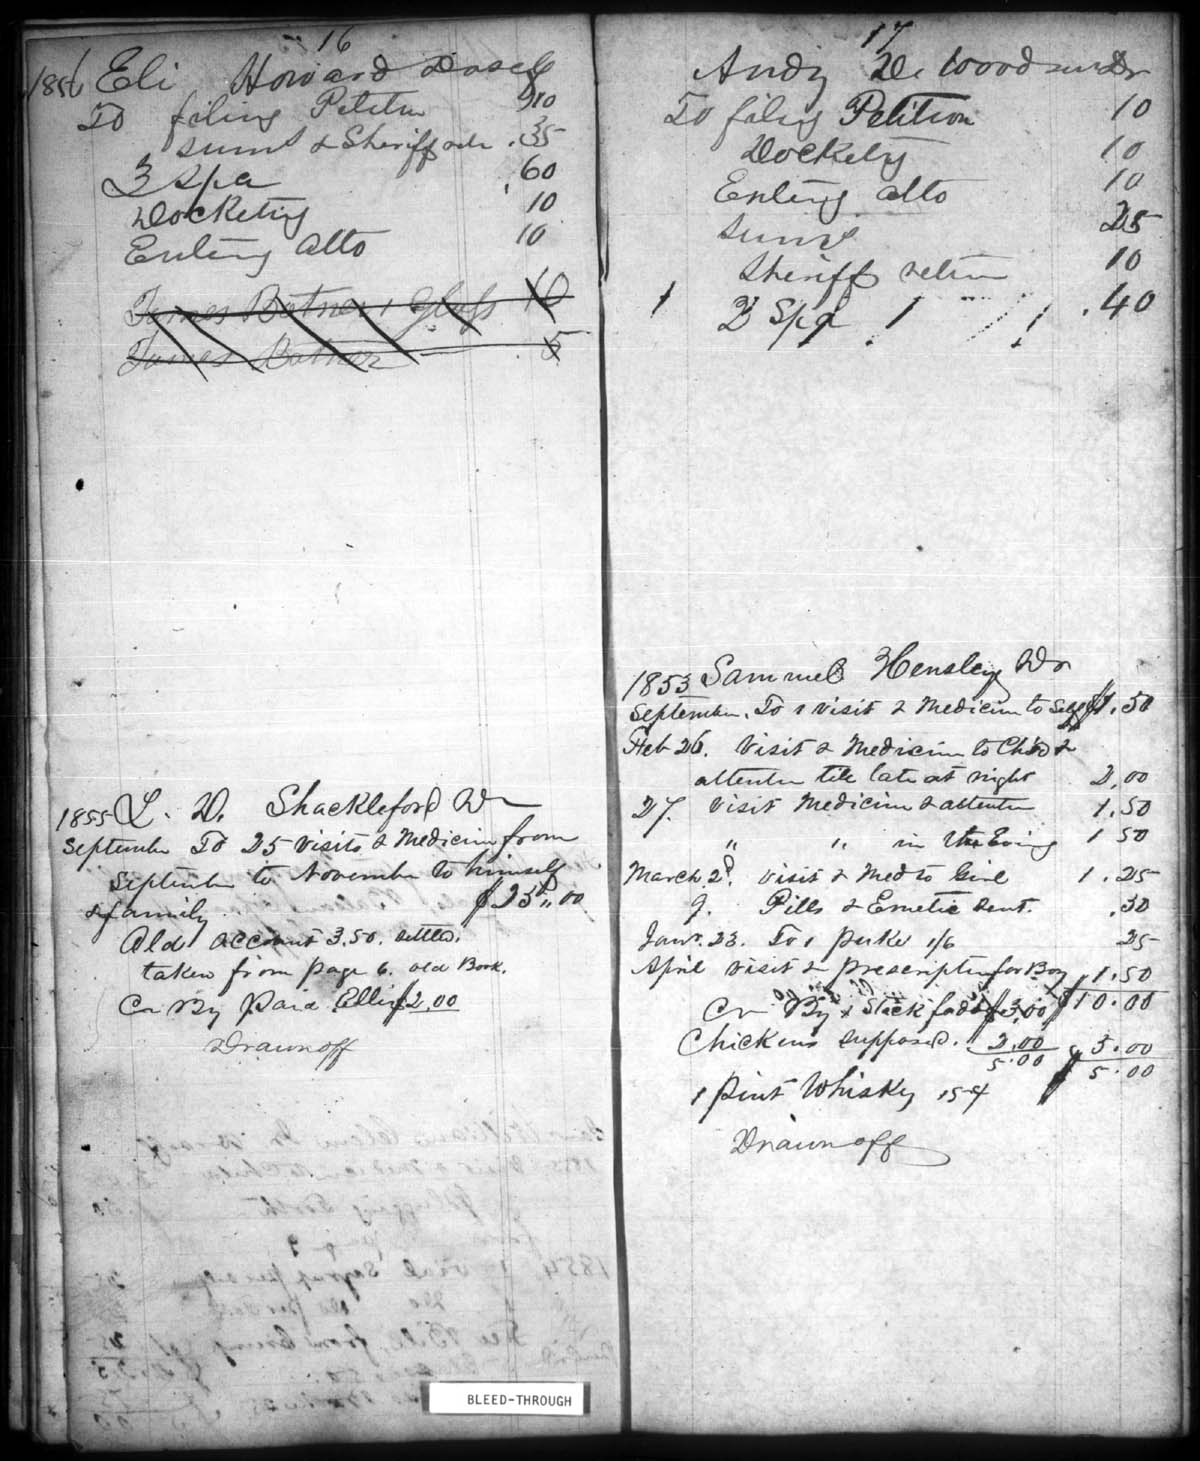 16
1856 Eli Howard
To filing Petitn 10
sums & Sheriff retn .35
3 Spa .60
Docketing 10
Entering atto 10
James Botner 1 Glass 10
James Botner 5
1855 L. D. Shackleford Dr
September To 25 visits & Medicin from
September to November to himself
& family $25.00
Old account 3.50. settled.
taken from page 6. old Book.
Cr By paid Ellis $2.00
Drawn off
17
Andy D. Woodson Dr
To filing Petition 10
Docketing 10
Entering atto 10
sums 25
Sheriff return 10
2 Spa .40
1853 Samuel Hensley Dr
September. To 1 visit & Medicin to Self $1.50
Feb 26. Visit & Medicin to Child &
attention till late at night 2.00
27. Visit Medicin & attention 1.50
" " in the Evning 1 50
March 2d. visit & Med to Girl 1.25
9. Pills & Emetic sent. .30
Jany. 23. To 1 1/6 25
April visit & prescription for Boy 1.50
Cr By 1 Stack fodder $3.00 $10.00
Chickens supposed. 2.00 $5.00
5.00 $5.00
1 pint Whisky 15
Drawn off
1854
BLEED-THROUGH